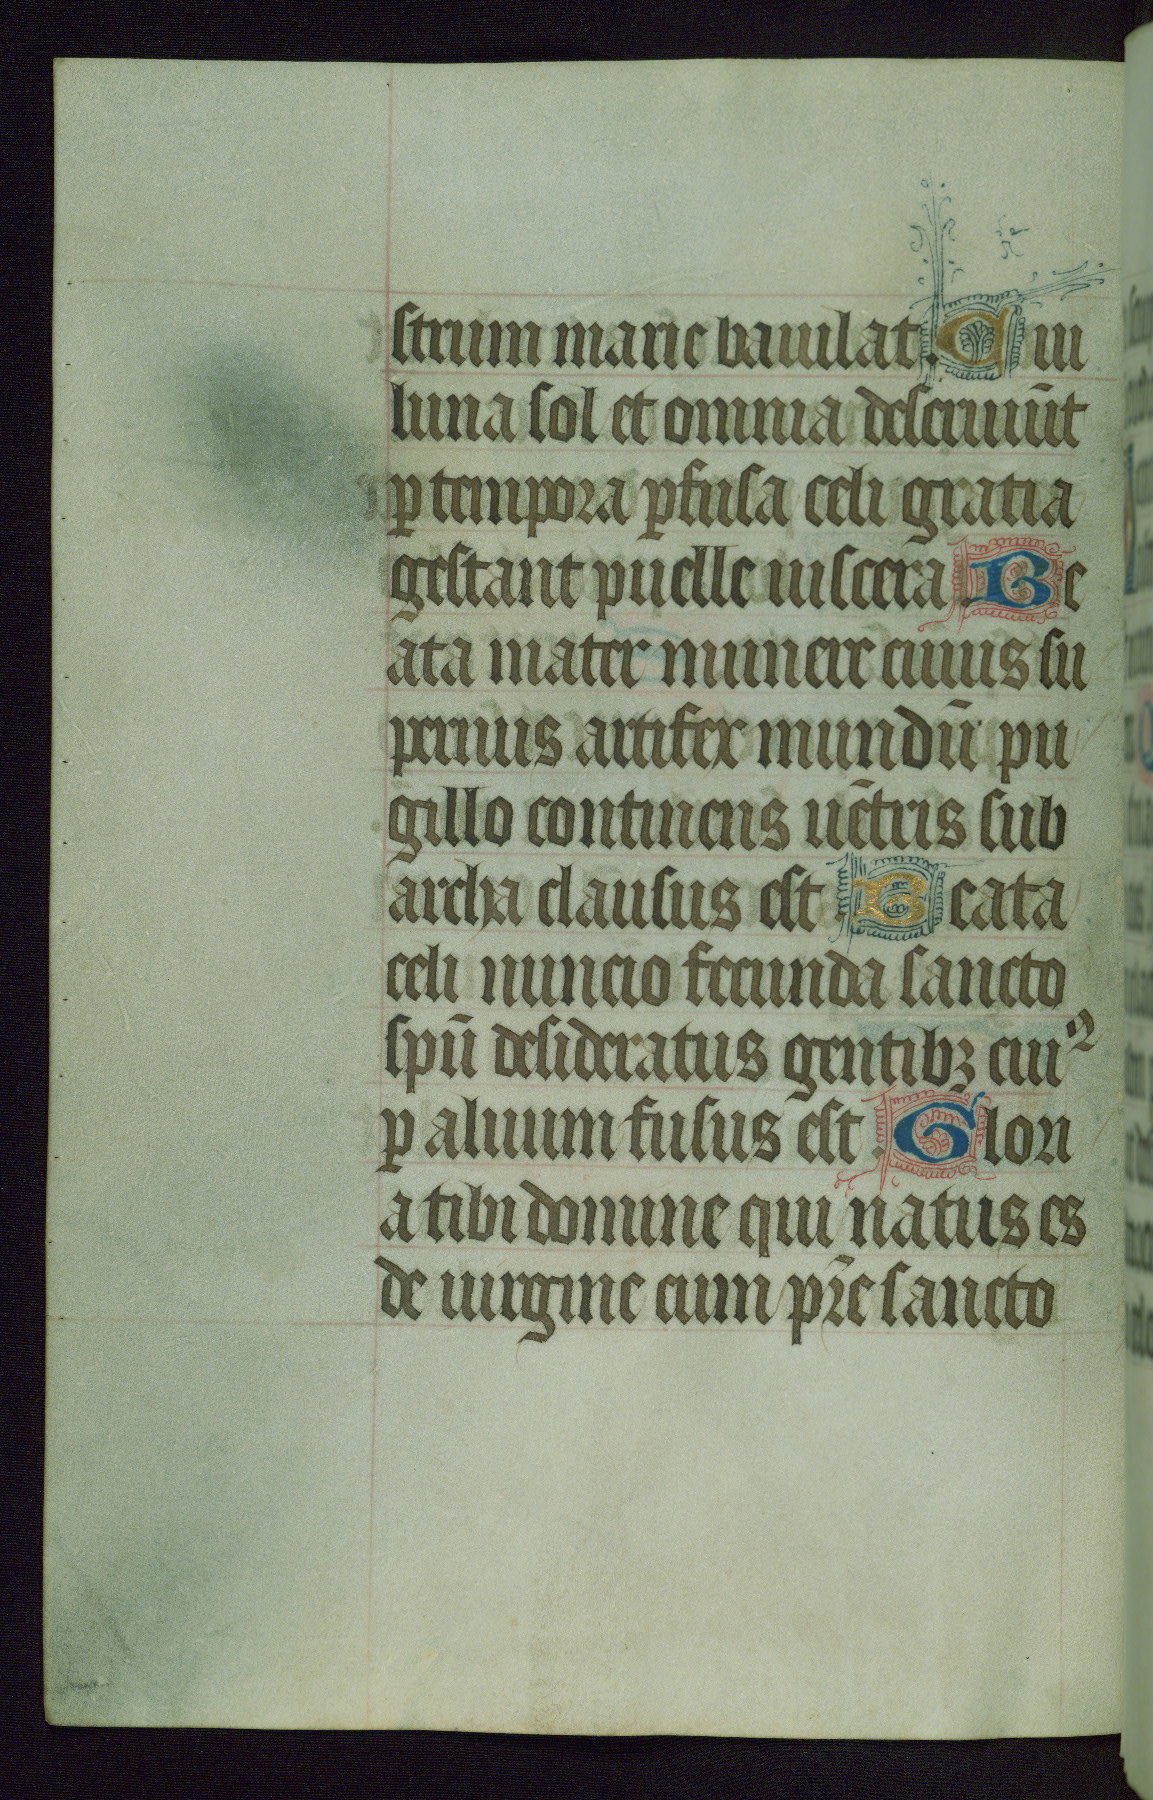 strum marie bauulat Cui
luna sol et omnia deseruiūt
ꝑ tempora ꝑfusa celi gratia
gestant puelle uiscera Be
ata mater munere cuius su
pernus artifex mundū pu
gillo continens uētris sub
archa clausus est Beata
celi nuncio fecunda sancto
spū desideratus gentibꝫ cuiꝰ
ꝑ aluum fusus est Glori
a tibi domine qui natus es
de uirgine cum pr̄e sancto